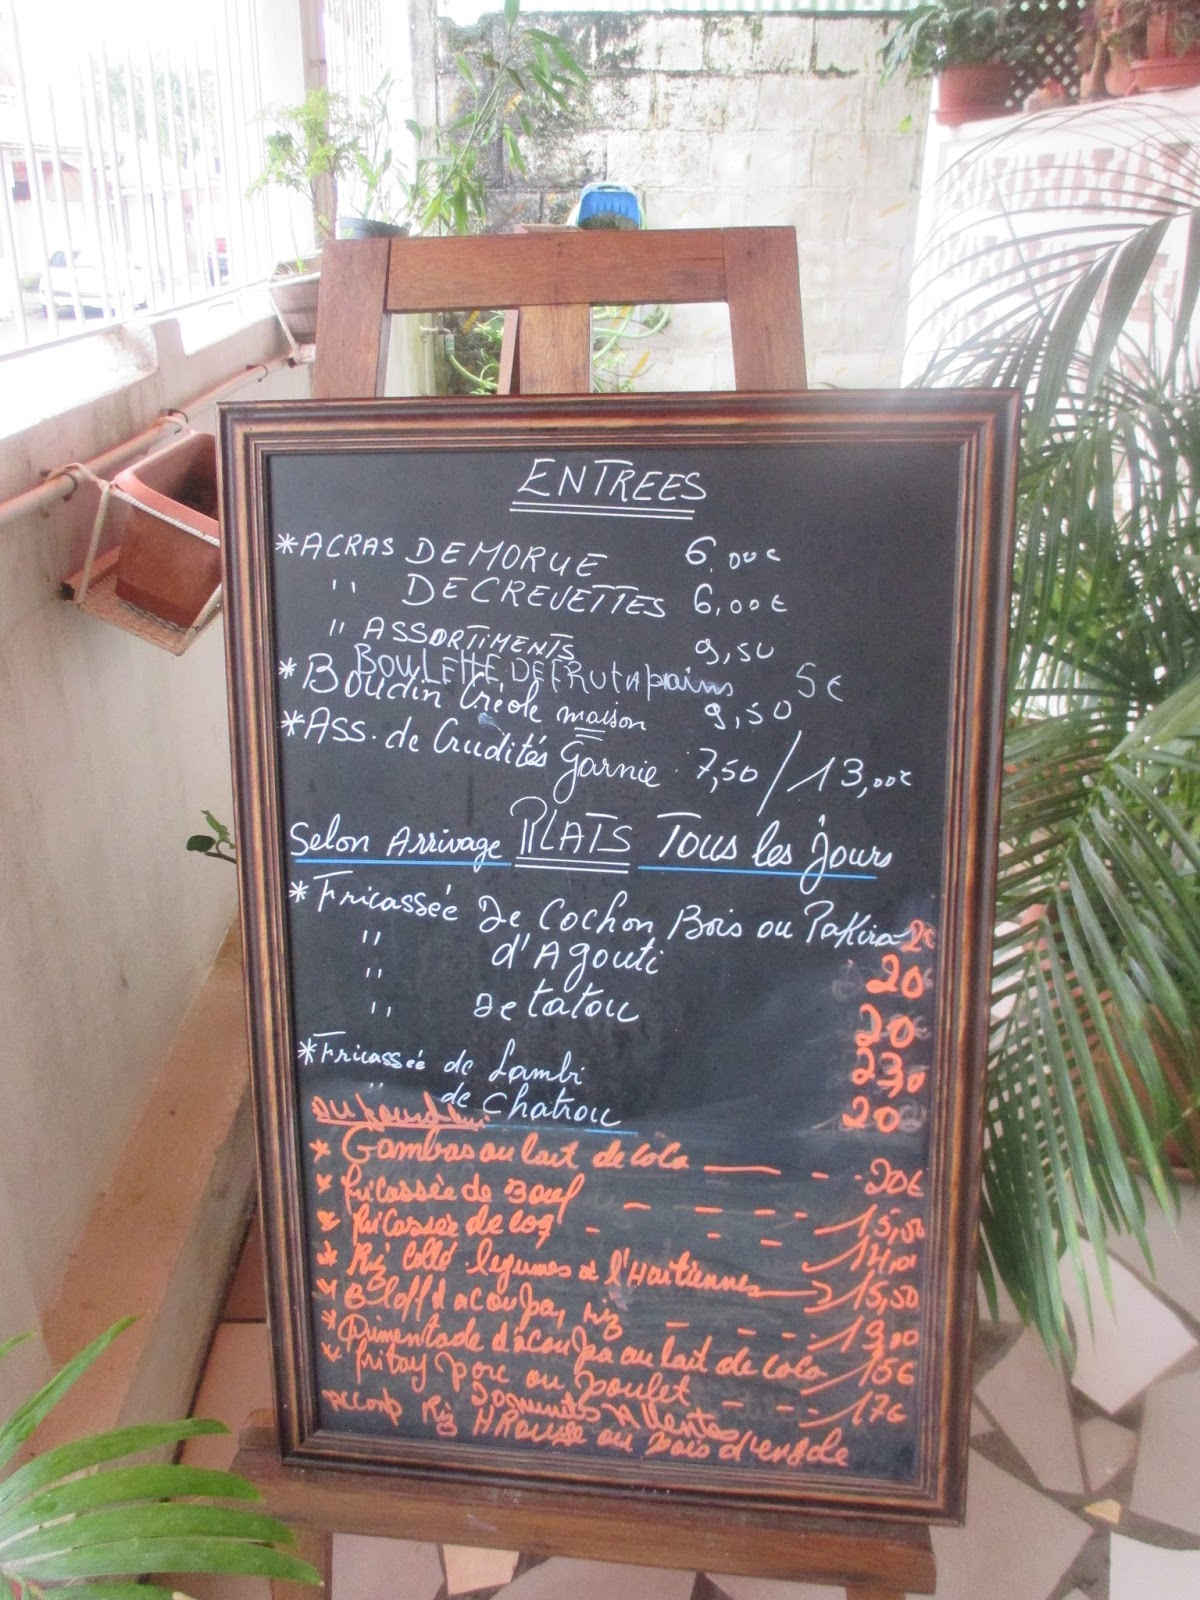 ENTREES
*ACRAS DE MORUE 6.00€
" DE CREVETTES 6,00€
" ASSORTIMENTS 9,50
BOULETTE DE FRUT A pains 5€
*Boudin Créole maison 9,50
*Ass. de Crudités Garnie 7,50/13,00€
Selon Arrivage PLATS Tous les jours
*Fricassée de Cochon Bois ou Pakira
" d'Agouti 20
" de tatou 20
"
*Fricassée de Lambi
" de Chatrou 20
* Gambas au lait de coco 20€
* fricassée de Bœuf 15,50
* fricassée de coq 14,00
* Riz collé légumes à l'Haitiennes 15,50
* Bloff d'acoupa, riz 19,00
* Pimentade d'acoupa au lait de coco
* fritay porc ou poulet 17€
20 minutes
accomp Riz H Rousse ou pois d'angole